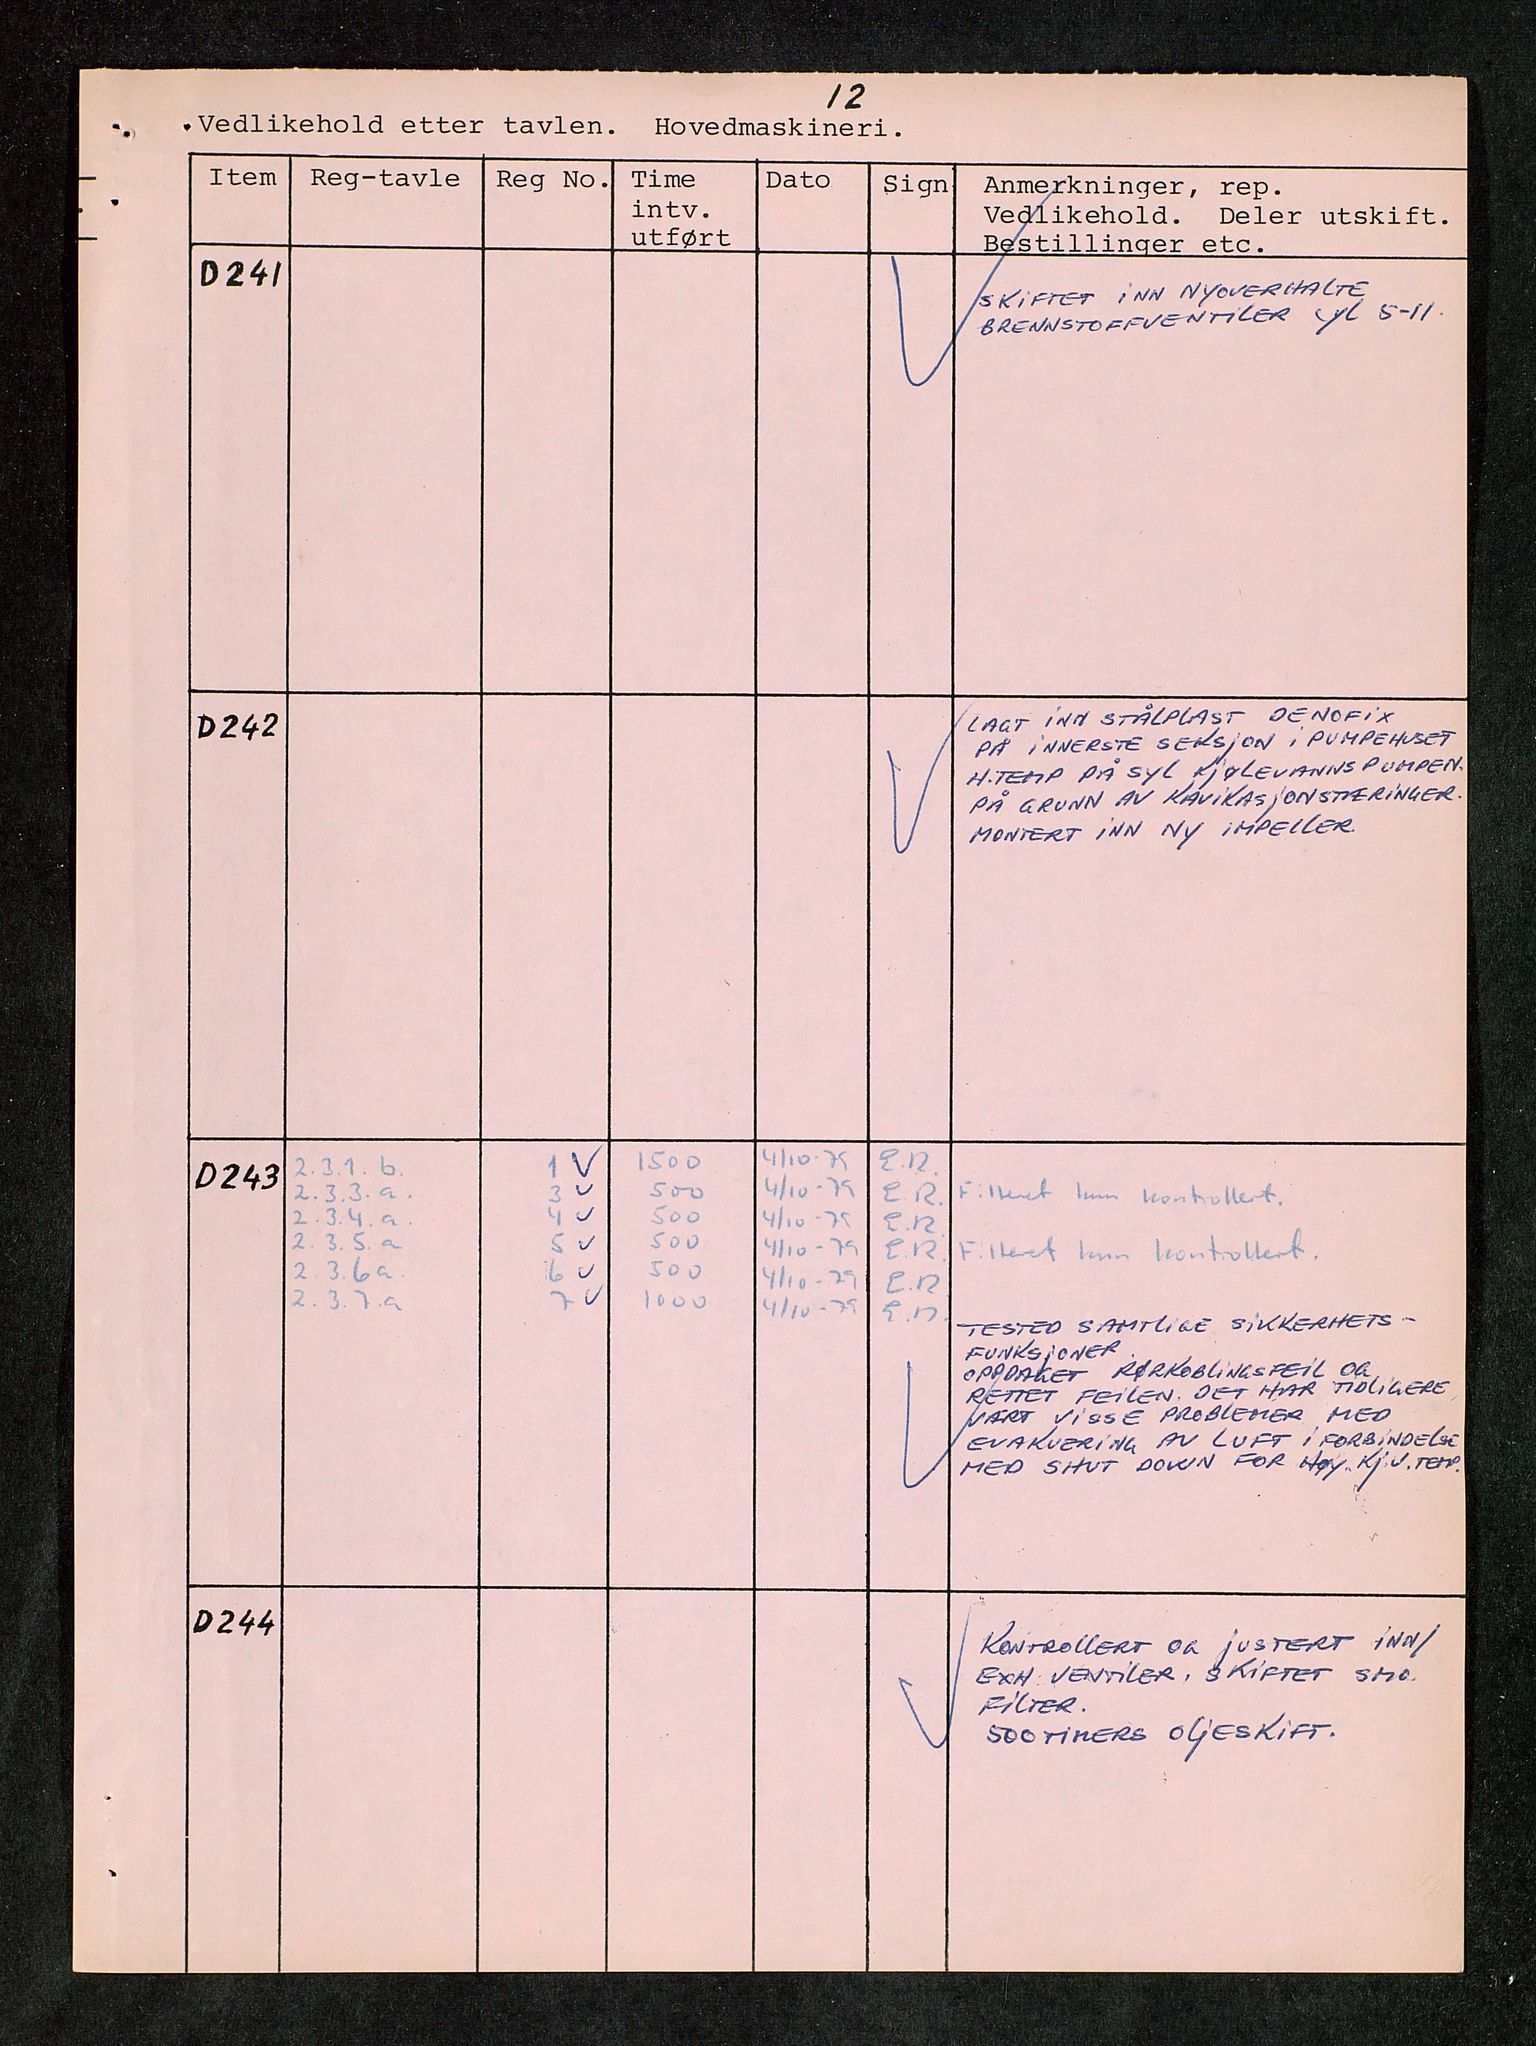 12
Vedlikehold etter tavlen. Hovedmaskineri.
Item Reg-tavle Reg No. Time intv. utført Dato Sign Anmerkninger, rep.
Vedlikehold. Deler utskift.
Bestillinger etc.
D241
SKIFTET INN NYOVERHALTE
BRENNSTOFFVENTILER CYL 5-11.
D242
LAGT INN STÅLPLAST DENOFIX
PÅ INNERSTE SEKSJON I PUMPEHUSET
H.TEMP PÅ SYL KJØLEVANNSPUMPEN.
PÅ GRUNN AV KAVIKASJONSTÆRINGER.
MONTERT INN NY IMPELLER.
D243
2.3.1.b. 1 ✓ 1500 4/10-79 E.R.
2.3.3.a. 3 ✓ 500 4/10-79 E.R. Filteret kun kontrollert.
2.3.4.a. 4 ✓ 500 4/10-79 E.R.
2.3.5.a 5 ✓ 500 4/10-79 E.R. Filteret kun kontrollert.
2.3.6a. 6 ✓ 500 4/10-79 E.R
2.3.7.a 7 ✓ 1000 4/10-79 E.R.
TESTED SAMTLIGE SIKKERHETS-
FUNKSJONER.
OPPDAGET RØRKOBLINGSFEIL OG
RETTET FEILEN. DET HAR TIDLIGERE
VÆRT VISSE PROBLEMER MED
EVAKUERING AV LUFT I FORBINDELSE
MED SHUT DOWN FOR HØY. KJ.V.TEMP.
D244
KONTROLLERT OG JUSTERT INN/
EXH. VENTILER. SKIFTET SMO.
FILTER.
500 TIMERS OLJESKIFT.